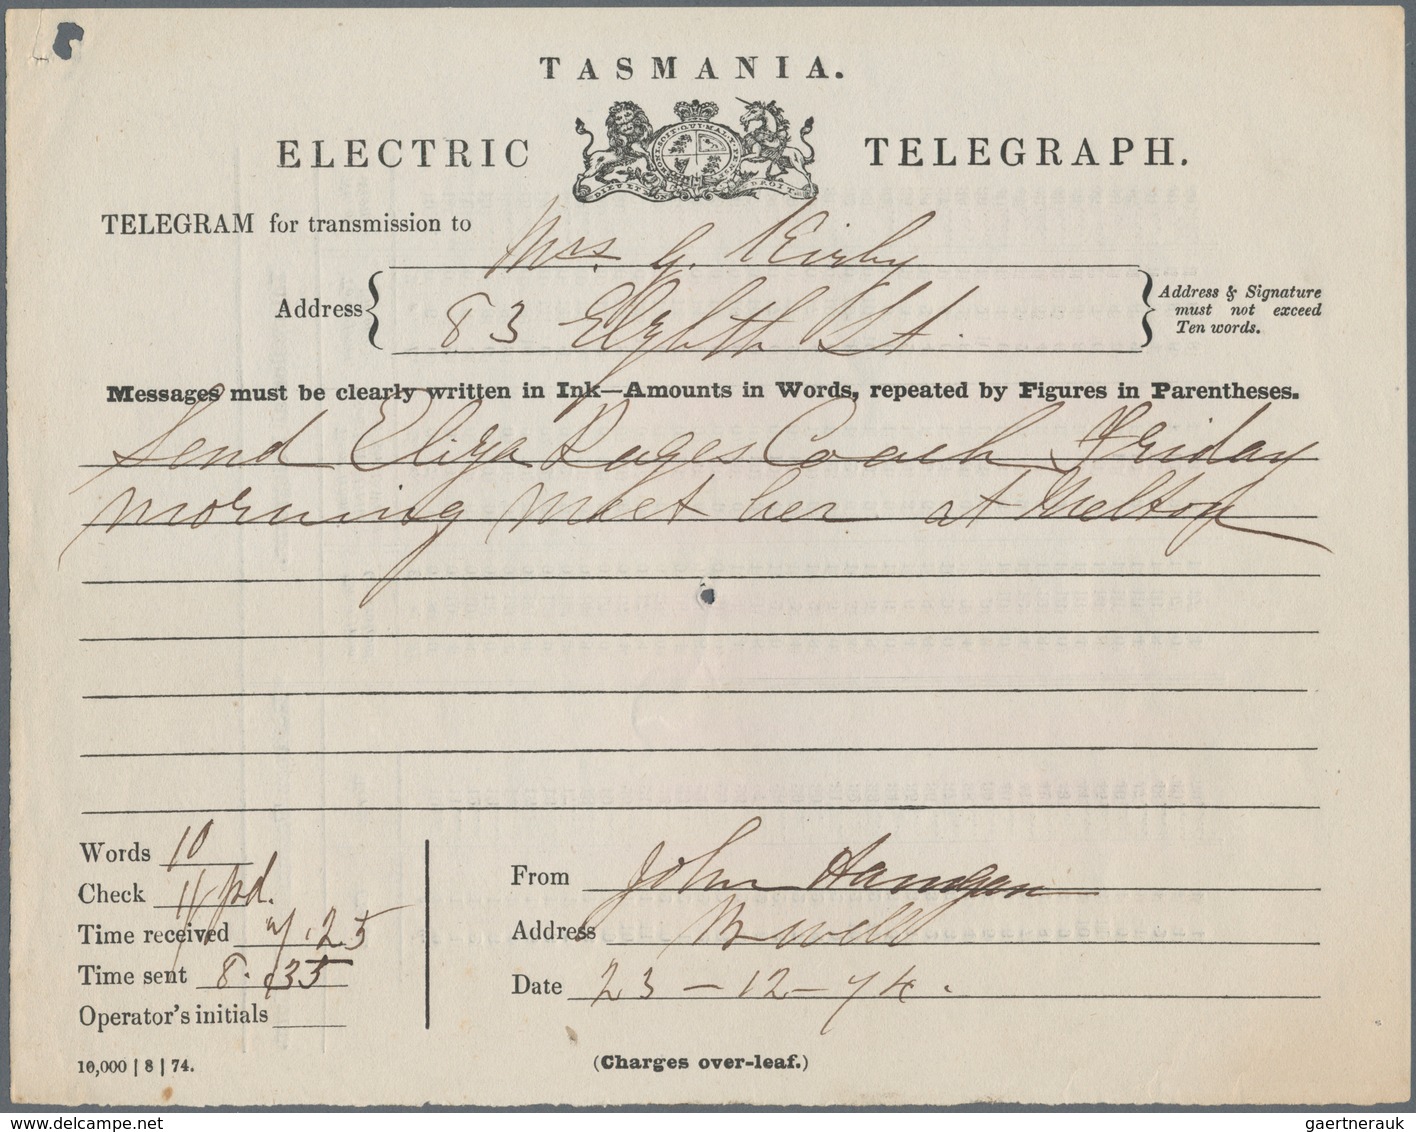 TASMANIA.
ELECTRIC TELEGRAPH.
HONI·SOIT·QUI·MAL·Y·PENSE
DIEU ET MON DROIT
TELEGRAM for transmission to
Mrs. G. Kirby
Address 83 Elzbth St.
Address & Signature
must not exceed
Ten words.
Messages must be clearly written in Ink—Amounts in Words, repeated by Figures in Parentheses.
Send Eliza Pages Coach Friday
morning meet her at Melton
Words 10
Check 11 pd.
Time received 25
Time sent 8. 35
Operator's initials
From John
Address
Date 23-12-74.
10,000 | 8 | 74.
(Charges over-leaf.)
gaertnerauk